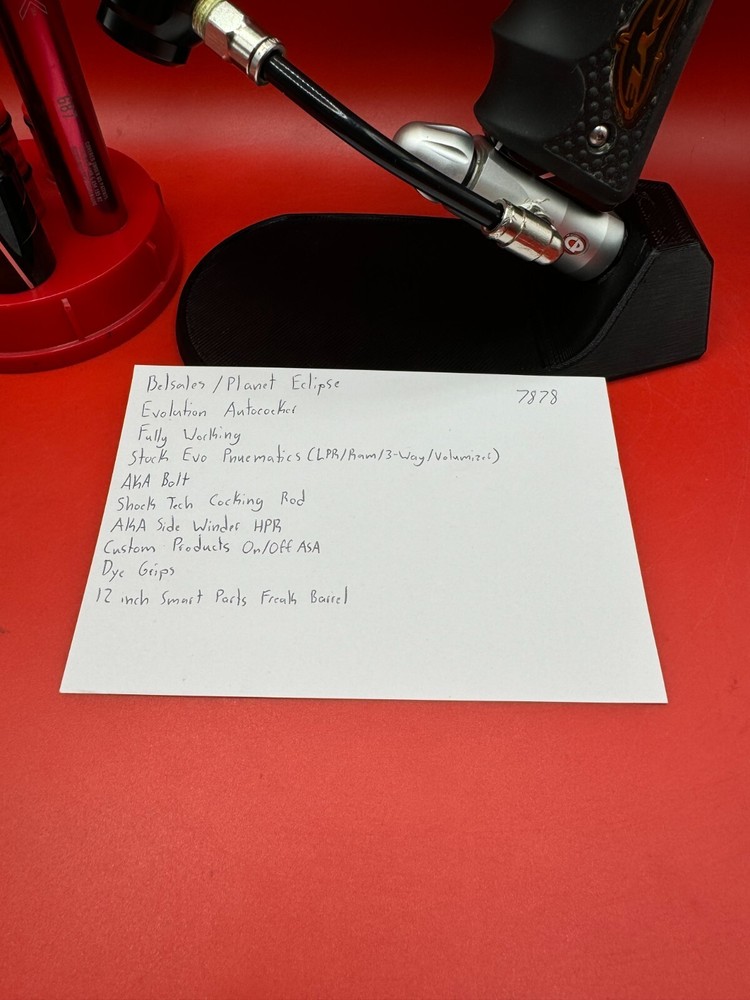 Belsales / Planet Eclipse
7878
Evolution Autococker
Fully Working
Stock Evo Pnuematics (LPR/Ram/3-Way/Volumizer)
AKA Bolt
Shock Tech Cocking Rod
AKA Side Winder HPR
Custom Products On/Off ASA
Dye Grips
12 inch Smart Parts Freak Barrel
DYE
.687